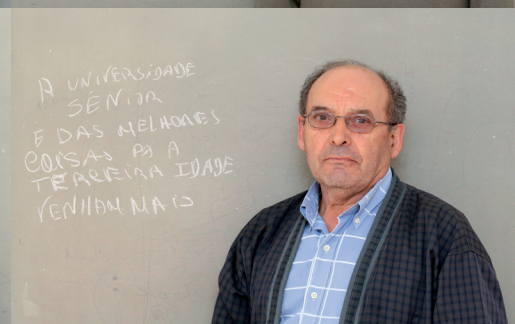 A UNIVERSIDADE
SÉNIOR
E DAS MELHORES
COISAS PA A
TERCEIRA IDADE
VENHAM MAIS